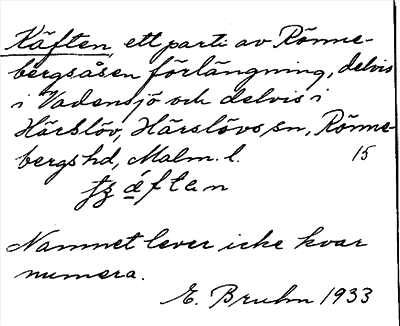 Käften, ett parti av Rönne-
bergsåsen förlängning, delvis
i Vadensjö och delvis i
Härslöv, Härslövs sn, Rönne-
bergs hd, Malm. l. 15
Nammet lever icke kvar
numera.
E. Bruhn 1933